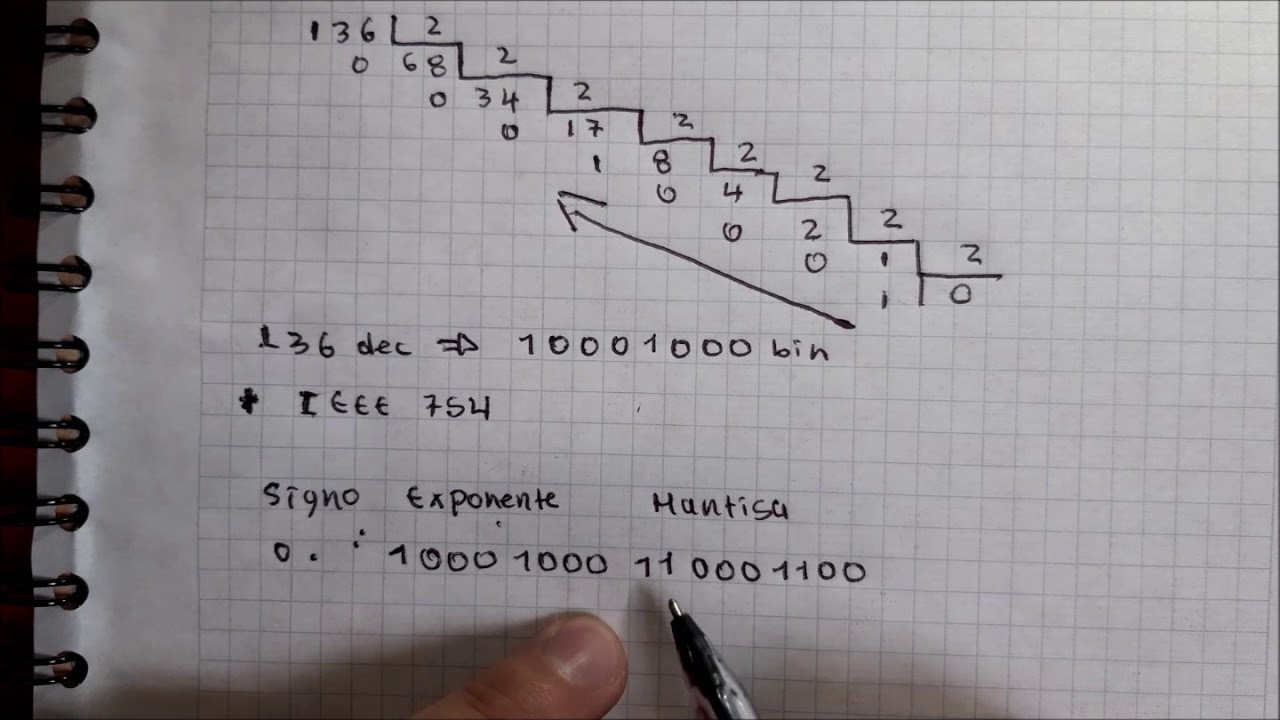 136 2
0 68 2
0 34 2
0 17 2
1 8 2
0 4 2
0 2 2
0 1 2
1 0
136 dec ⇒ 10001000 bin
* IEEE 754
Signo Exponente Mantisa
0. : 10001000 110001100